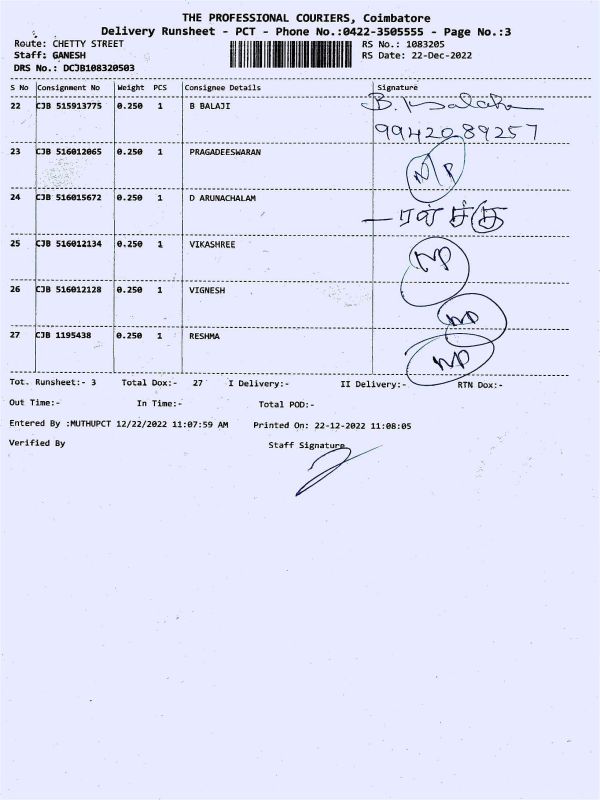 THE PROFESSIONAL COURIERS, Coimbatore
Delivery Runsheet - PCT - Phone No.:0422-3505555 - Page No.:3
Route: CHETTY STREET RS No.: 1083205
Staff: GANESH RS Date: 22-Dec-2022
DRS No.: DCJB108320503
S No Consignment No Weight PCS Consignee Details Signature
22 CJB 515913775 0.250 1 B BALAJI B.
9942089257
23 CJB 516012065 0.250 1 PRAGADEESWARAN N/P
24 CJB 516015672 0.250 1 D ARUNACHALAM
25 CJB 516012134 0.250 1 VIKASHREE NP
26 CJB 516012128 0.250 1 VIGNESH NP
27 CJB 1195438 0.250 1 RESHMA NP
Tot. Runsheet:- 3 Total Dox:- 27 I Delivery:- II Delivery:- RTN Dox:-
Out Time:- In Time:- Total POD:-
Entered By :MUTHUPCT 12/22/2022 11:07:59 AM Printed On: 22-12-2022 11:08:05
Verified By Staff Signature